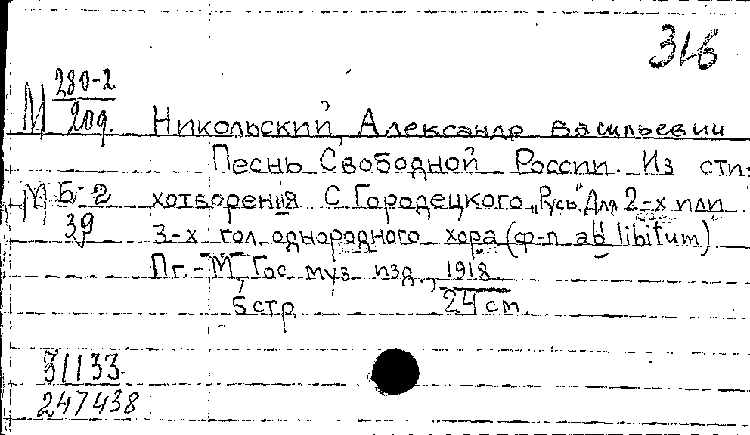 316
М 280-2
209
Никольский, Александр Васильевич
Песнь Свободной России. Из сти-
М Б-2 хотворения С. Городецкого „Русь". Для 2-х или
39 3-х гол. однородного хора (ф-п ad libitum)
Пг.-М., Гос. муз. изд., 1918.
5 стр. 24 см.
31133
247438